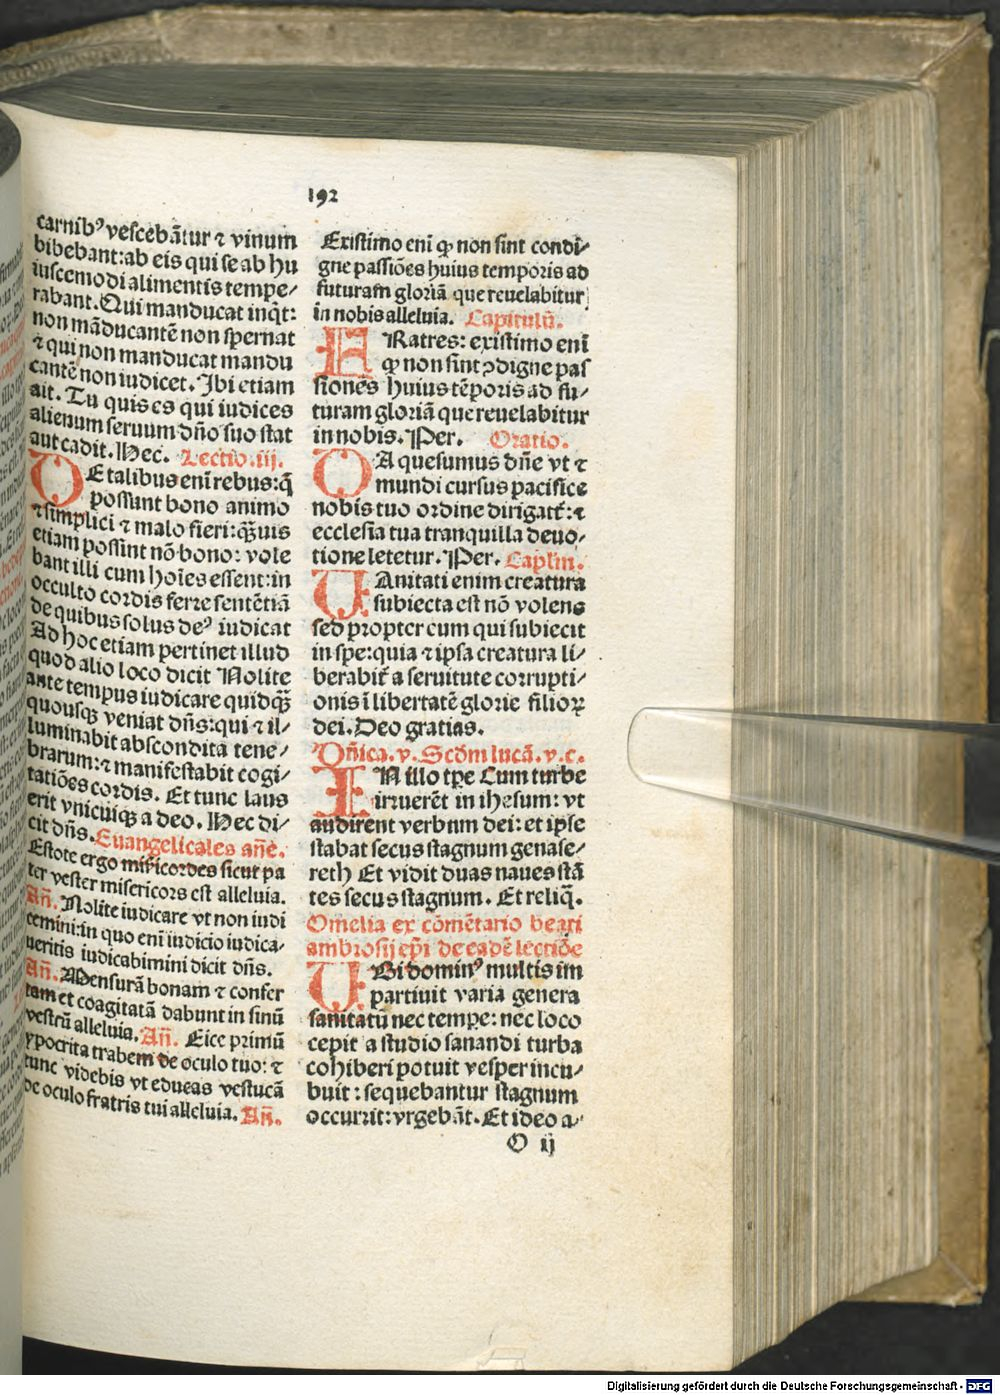 192
carnib⁹ vescebãtur ⁊ vinum
bibebant: ab eis qui se ab hu
iuscemodi alimentis tempe⸗
rabant. Qui manducat inq̃t:
non mãducantẽ non spernat
⁊ qui non manducat mandu
cantẽ non iudicet. Ibi etiam
ait. Tu quis es qui iudices
alienum seruum dño suo stat
aut cadit. Hec. Lectio .iij.
DE talibus enĩ rebus: q̃
possunt bono animo
⁊ simplici ⁊ malo fieri: q̃uis
etiam possint nõ bono: vole
bant illi cum hoĩes essent: in
occulto cordis ferre sentẽtiã
de quibus solus de⁹ iudicat
Ad hoc etiam pertinet illud
quod alio loco dicit Nolite
ante tempus iudicare quidq̃
quousqꝫ veniat dñs: qui ⁊ il⸗
luminabit abscondita tene⸗
brarum: ⁊ manifestabit cogi⸗
tatiões cordis. Et tunc laus
erit vnicuiqꝫ a deo. Hec di⸗
cit dñs. Euangelicales añe.
Estote ergo misĩcordes sicut pa
ter vester misericors est alleluia.
Añ. Nolite iudicare vt non iudi
cemini: in quo enĩ iudicio iudica⸗
ueritis iudicabimini dicit dñs.
Añ. Mensurã bonam ⁊ confer
tam et coagitatã dabunt in sinũ
vestrũ alleluia. Añ. Eice primũ
ypocrita trabem de oculo tuo: ⁊
tunc videbis vt educas vestucã
de oculo fratris tui alleluia. Añ.
Existimo enĩ ꝙ non sint condi⸗
gne passiões huius temporis ad
futuram gloriã que reuelabitur
in nobis alleluia. Capitulũ.
FRatres: existimo enĩ
ꝙ non sint ꝯdigne pas
siones huius tẽporis ad fu⸗
turam gloriã que reuelabitur
in nobis. Per. Oratio.
DA quesumus dñe vt ⁊
mundi cursus pacifice
nobis tuo ordine dirigatr̃: ⁊
ecclesia tua tranquilla deuo⸗
tione letetur. Per. Caplm̃.
VAnitati enim creatura
subiecta est nõ volens
sed propter eum qui subiecit
in spe: quia ⁊ ipsa creatura li⸗
berabit̃ a seruitute corrupti⸗
onis ĩ libertatẽ glorie filioꝝ
dei. Deo gratias.
Dñica. v. Scdm̃ lucã. v. c.
IN illo tp̃e Cum turbe
irruerẽt in ihesum: vt
audirent verbum dei: et ipse
stabat secus stagnum genase⸗
reth Et vidit duas naues stã
tes secus stagnum. Et reliq̃.
Omelia ex cõmẽtario beati
ambrosij ep̃i de eadẽ lectiõe
VBi domin⁹ multis im
partiuit varia genera
sanitatũ nec tempe: nec loco
cepit a studio sanandi turba
cohiberi potuit vesper incu⸗
buit: sequebantur stagnum
occurrit: vrgebãt. Et ideo a⸗
O ij
Digitalisierung gefördert durch die Deutsche Forschungsgemeinschaft - DFG